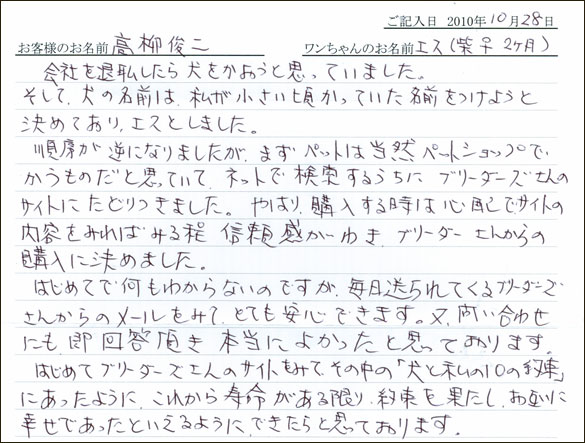 ご記入日 2010年10月28日
お客様のお名前 高柳俊二 ワンちゃんのお名前 エス(柴犬 2ヶ月)
会社を退職したら犬をかおうと思っていました。
そして、犬の名前は、私が小さい頃かっていた名前をつけようと
決めており、エスとしました。
順序が逆になりましたが、まずペットは当然ペットショップで
かうものだと思っていて、ネットで検索するうちにブリーダーズさんの
サイトにたどりつきました。やはり、購入する時は心配でサイトの
内容をみればみる程 信頼感がわき、ブリーダーさんからの
購入に決めました。
はじめてで何もわからないのですが、毎日送られてくるブリーダーズ
さんからのメールをみて、とても安心できます。又、問い合わせ
にも即回答頂き本当によかったと思っております。
はじめてブリーダーズさんのサイトをみて、その中の「犬と私の10の約束」
にあったように、これから寿命がある限り、約束を果たし、お互いに
幸せであったといえるようにできたらと思っております。